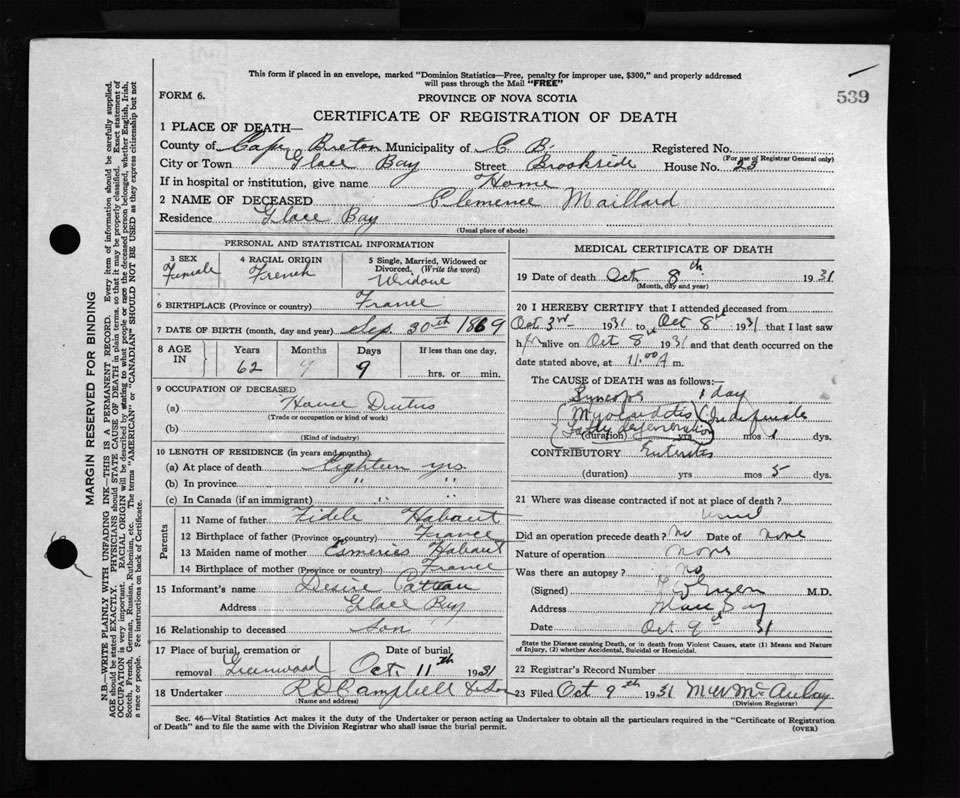 This form if placed in an envelope, marked "Dominion Statistics—Free, penalty for improper use, $300," and properly addressed
will pass through the Mail "FREE"
FORM 6.
PROVINCE OF NOVA SCOTIA
539
CERTIFICATE OF REGISTRATION OF DEATH
1 PLACE OF DEATH—
County of Cape Breton Municipality of C B. Registered No.
(For use of Registrar General only)
City or Town Glace Bay Street Brookside House No. 23
If in hospital or institution, give name Home
2 NAME OF DECEASED Clemence Maillard
Residence Glace Bay
(Usual place of abode)
PERSONAL AND STATISTICAL INFORMATION
3 SEX 4 RACIAL ORIGIN 5 Single, Married, Widowed or
Divorced. (Write the word)
Female French Widow
6 BIRTHPLACE (Province or country) France
7 DATE OF BIRTH (month, day and year) Sep. 30th 1869
8 AGE IN Years Months Days If less than one day,
62 9 hrs. or min.
9 OCCUPATION OF DECEASED
(a) House Duties
(Trade or occupation or kind of work)
(b)
(Kind of industry)
10 LENGTH OF RESIDENCE (in years and months)
(a) At place of death Eighteen yrs.
(b) In province " "
(c) In Canada (if an immigrant) " "
Parents
11 Name of father Fidele Habaut
12 Birthplace of father (Province or country) France
13 Maiden name of mother Habaut
14 Birthplace of mother (Province or country) France
15 Informant's name Desire
Address Glace Bay
16 Relationship to deceased Son
17 Place of burial, cremation or Date of burial
removal Greenwood Oct. 11th 1931
18 Undertaker R D Campbell & Son
(Name and address)
MEDICAL CERTIFICATE OF DEATH
19 Date of death Oct 8th 1931
(Month, day and year)
20 I HEREBY CERTIFY that I attended deceased from
Oct 3rd 1931 to Oct 8th 1931 that I last saw
her alive on Oct 8 1931 and that death occurred on the
date stated above, at 11.00 A m.
The CAUSE of DEATH was as follows:—
Syncope 1 day
Myocarditis Indefinite
Fatty degeneration
(duration) yrs mos 1 dys.
CONTRIBUTORY Enteritis
(duration) yrs mos 5 dys.
21 Where was disease contracted if not at place of death?
Did an operation precede death? No Date of none
Nature of operation none
Was there an autopsy? No
(Signed) M.D.
Address Glace Bay
Date Oct 9th 31
State the Disease causing Death, or in death from Violent Causes, state (1) Means and Nature
of Injury, (2) whether Accidental, Suicidal or Homicidal.
22 Registrar's Record Number
23 Filed Oct 9th 1931 M W McAulay
(Division Registrar)
Sec. 46—Vital Statistics Act makes it the duty of the Undertaker or person acting as Undertaker to obtain all the particulars required in the "Certificate of Registration
of Death" and to file the same with the Division Registrar who shall issue the burial permit.
(OVER)
MARGIN RESERVED FOR BINDING
N.B.—WRITE PLAINLY WITH UNFADING INK—THIS IS A PERMANENT RECORD. Every item of information should be carefully supplied.
AGE should be stated EXACTLY. PHYSICIANS should STATE CAUSE OF DEATH in plain terms, so that it may be properly classified. Exact statement of
OCCUPATION is very important. RACIAL ORIGIN will be described by stating to what people or race the deceased person belonged, whether English, Irish,
Scotch, French, German, Russian, Ruthenian, etc. The terms "AMERICAN" or "CANADIAN" SHOULD NOT BE USED as they express citizenship but not
a race or people. Fee instructions on back of Certificate.